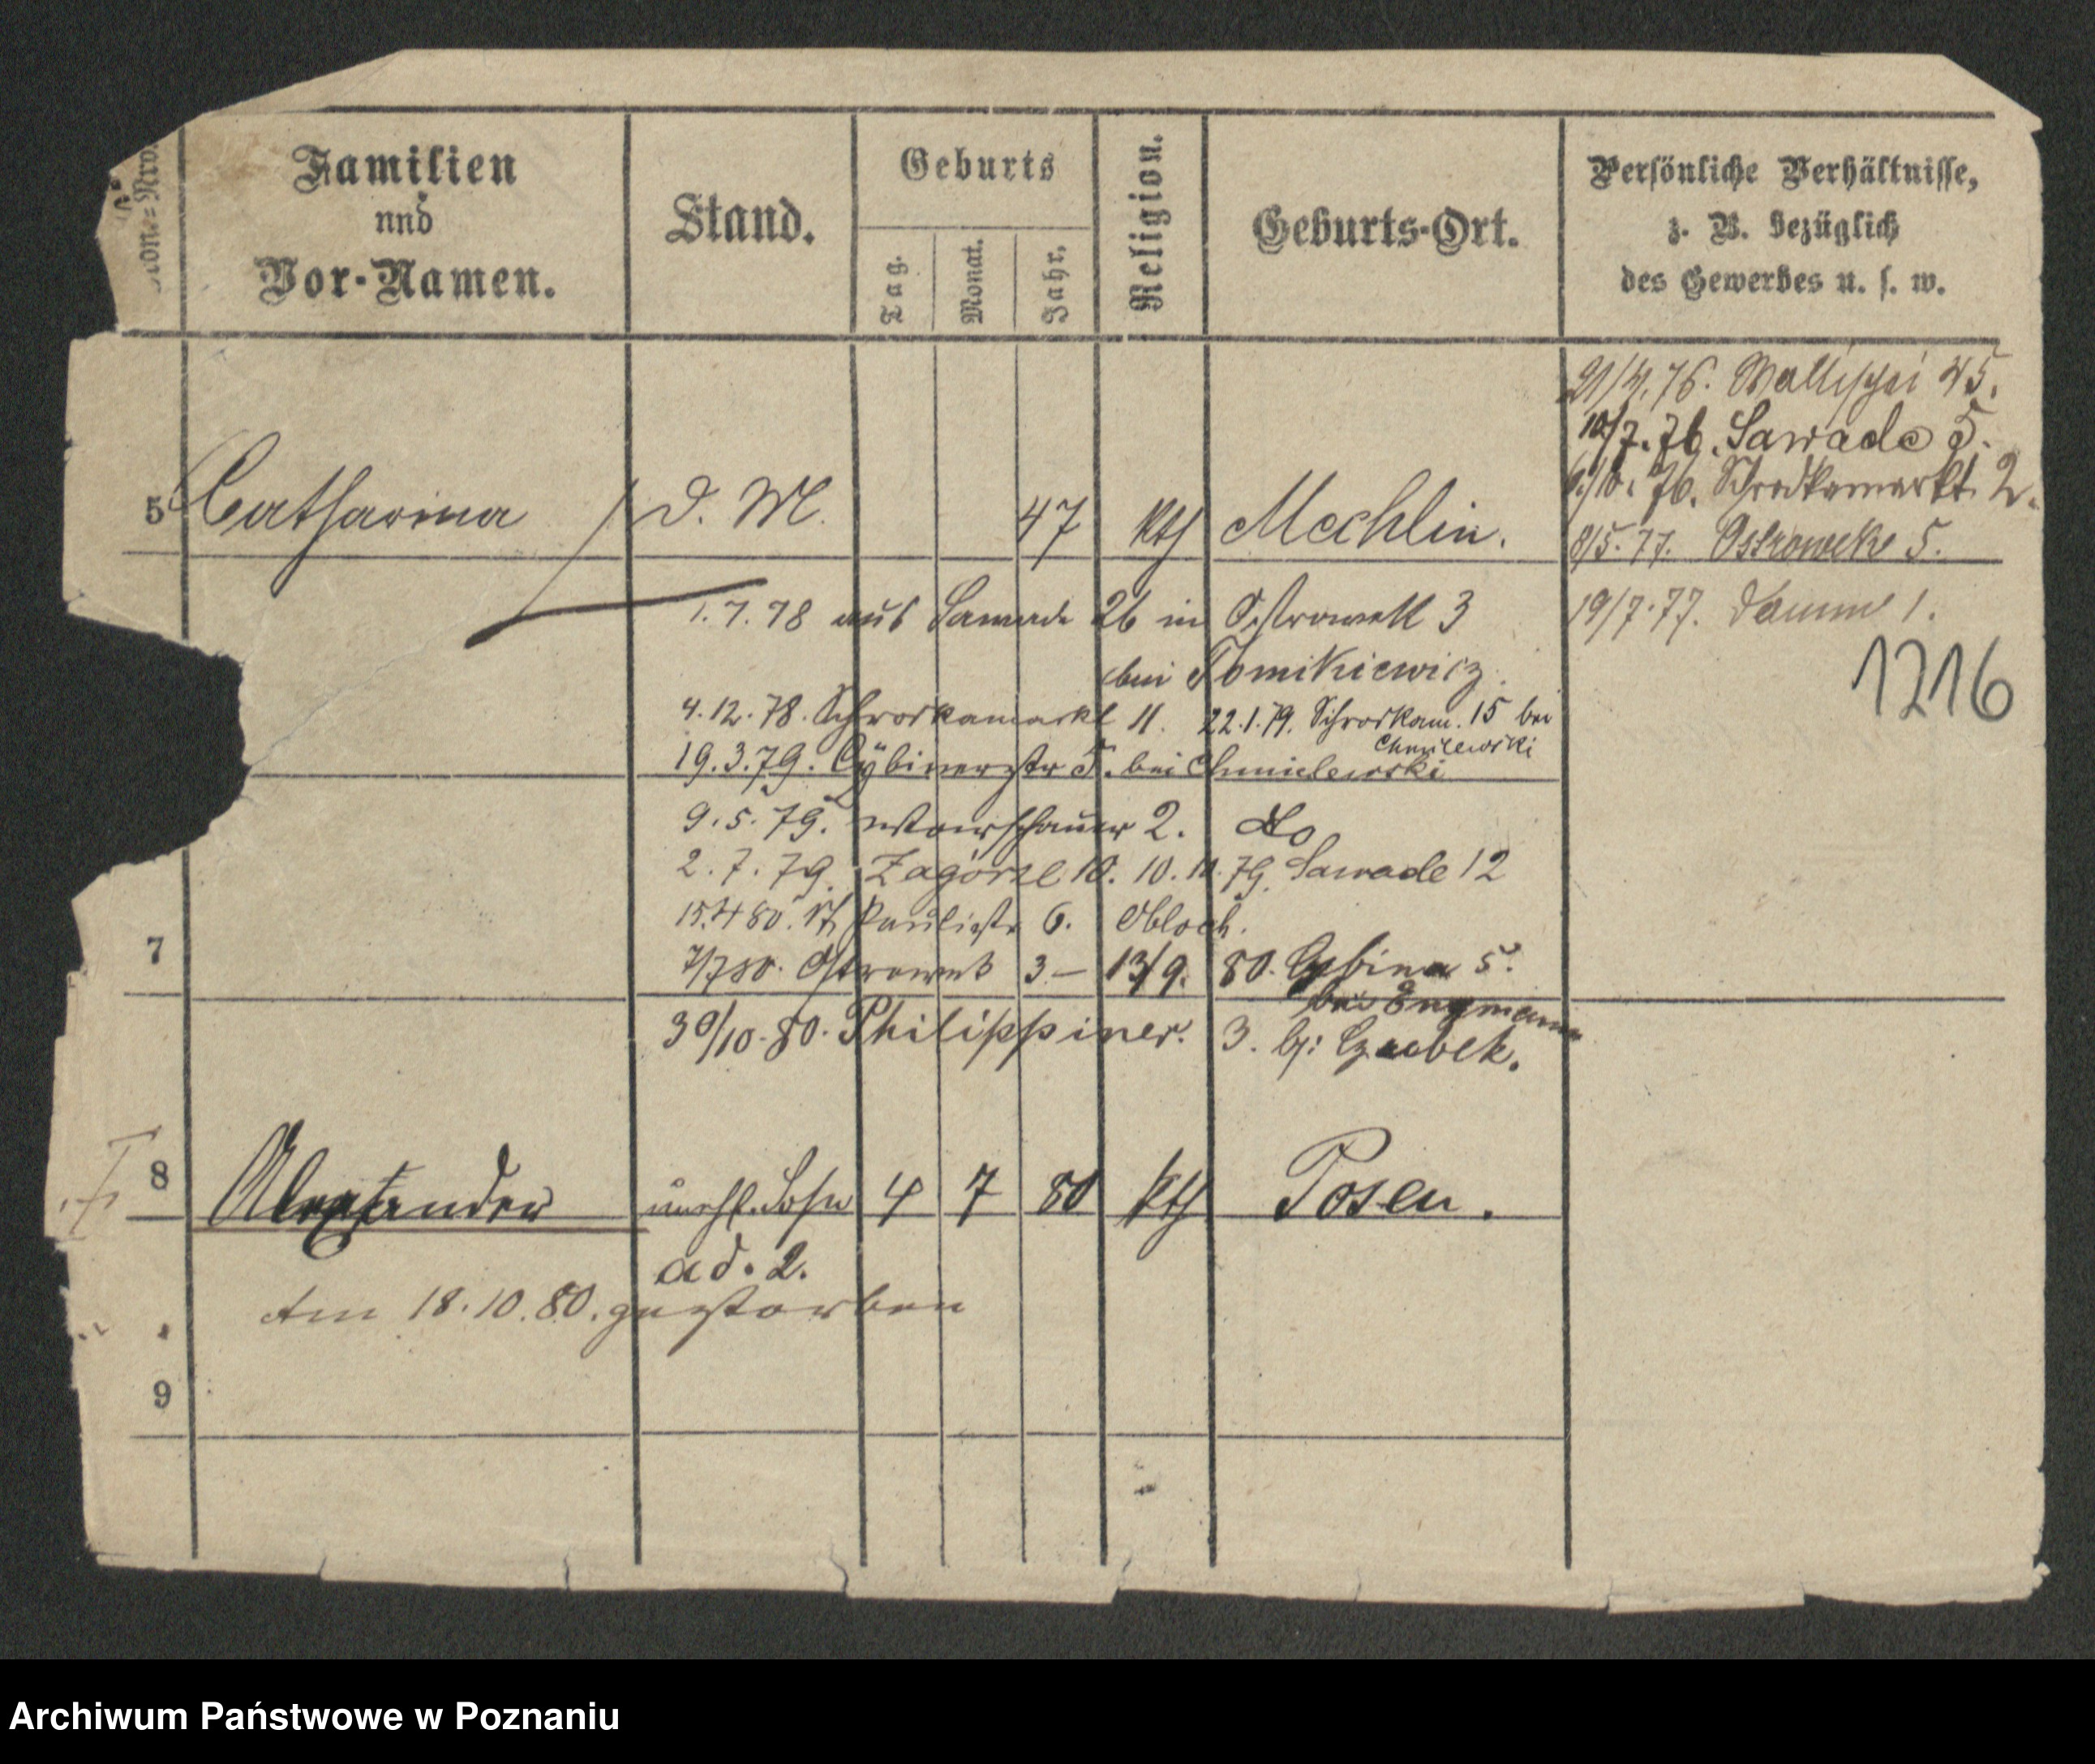 Familien
und
Vor-Namen.
Stand.
Geburts
Tag.
Monat.
Jahr.
Religion.
Geburts-Ort.
Persönliche Verhältnisse,
z. B. bezüglich
des Gewerbes u. s. w.
21/4.76. Wallischei 45.
10/7.76. Sawade 5.
6./10. 76. Schrodkamarkt 2.
5 Catharina d. M. 47 kth Mechlin.
8/5.77. Ostrowek 5.
1.7.78 aus Sawade 26 in Ostrowek 3
19/7.77. Damm 1.
bei Tomikiewicz.
1216
4.12.78. Schrodkamarkt 11. 22.1.79. Schrodkam. 15 bei
Chmilewski
19.3.79. Cybinerstr 5. bei Chmielewski
9.5.79. Warschauer 2. do
2.7.79. Zagorze 10. 10.10.79. Sawade 12
15.4 80. St Paulistr 6.
7
7/7 80. Ostrowek 3 – 13/9. 80. Cybina 5.
bei Engmann
30/10.80. Philippiner. 3. bei
8 Alexander unehl. Sohn 4 7 80 kth Posen.
ad. 2.
Am 18.10.80. gestorben
9
Archiwum Państwowe w Poznaniu